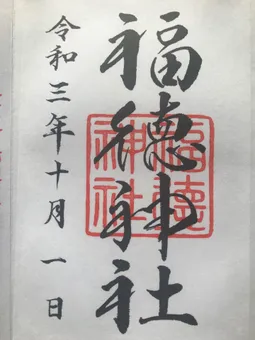 福徳神社
令和三年十月一日
福徳
神社